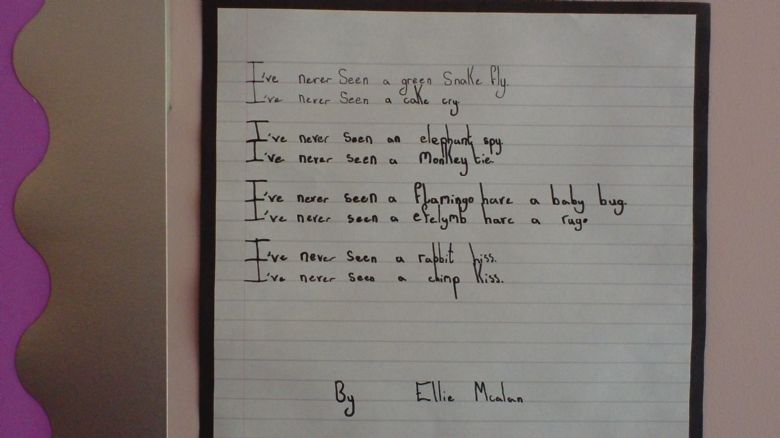 I've never Seen a green Snake fly.
I've never Seen a cake cry.
I've never Seen an elephant spy.
I've never seen a Monkey tie.
I've never seen a flamingo have a baby bug.
I've never seen a have a rug.
I've never Seen a rabbit hiss.
I've never Seen a chimp Kiss.
By Ellie Mcalan